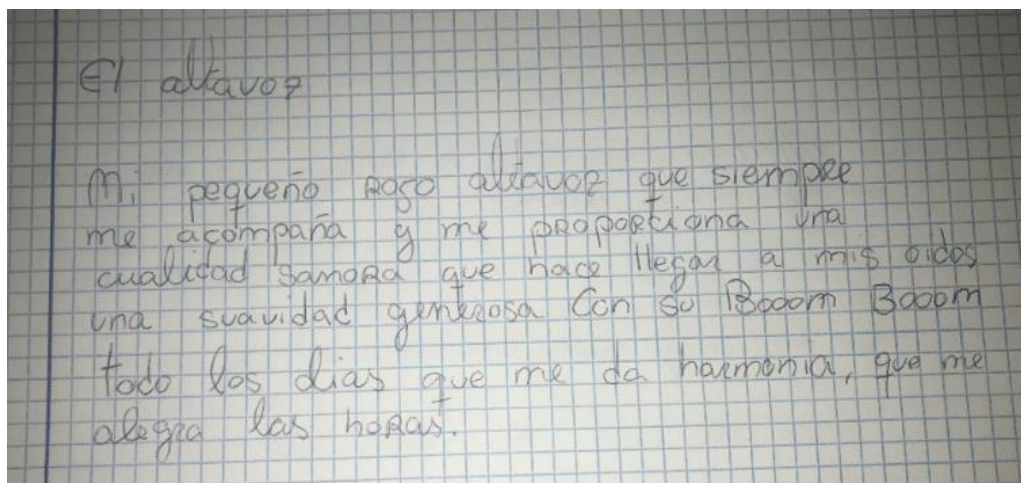 El altavoz
Mi pequeño rogo altavoz que siempre
me acompaña y me proporciona una
cualidad sanora que hace llegar a mis oidos
una suavidad generosa Con su Booom Booom
todo los dias que me da harmonia, que me
alegra las horas.